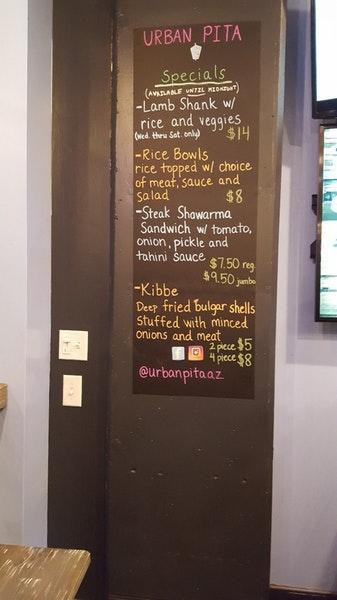 URBAN PITA
Specials
(AVAILABLE UNTIL MIDNIGHT)
-Lamb Shank w/
rice and veggies
(Wed. thru Sat. only) $14
-Rice Bowls
rice topped w/ choice
of meat, sauce and
salad $8
-Steak Shawarma
Sandwich w/ tomato,
onion, pickle and
tahini sauce
$7.50 reg.
$9.50 jumbo
-Kibbe
Deep fried bulgar shells
Stuffed with minced
onions and meat
2 piece $5
4 piece $8
@urbanpitaaz